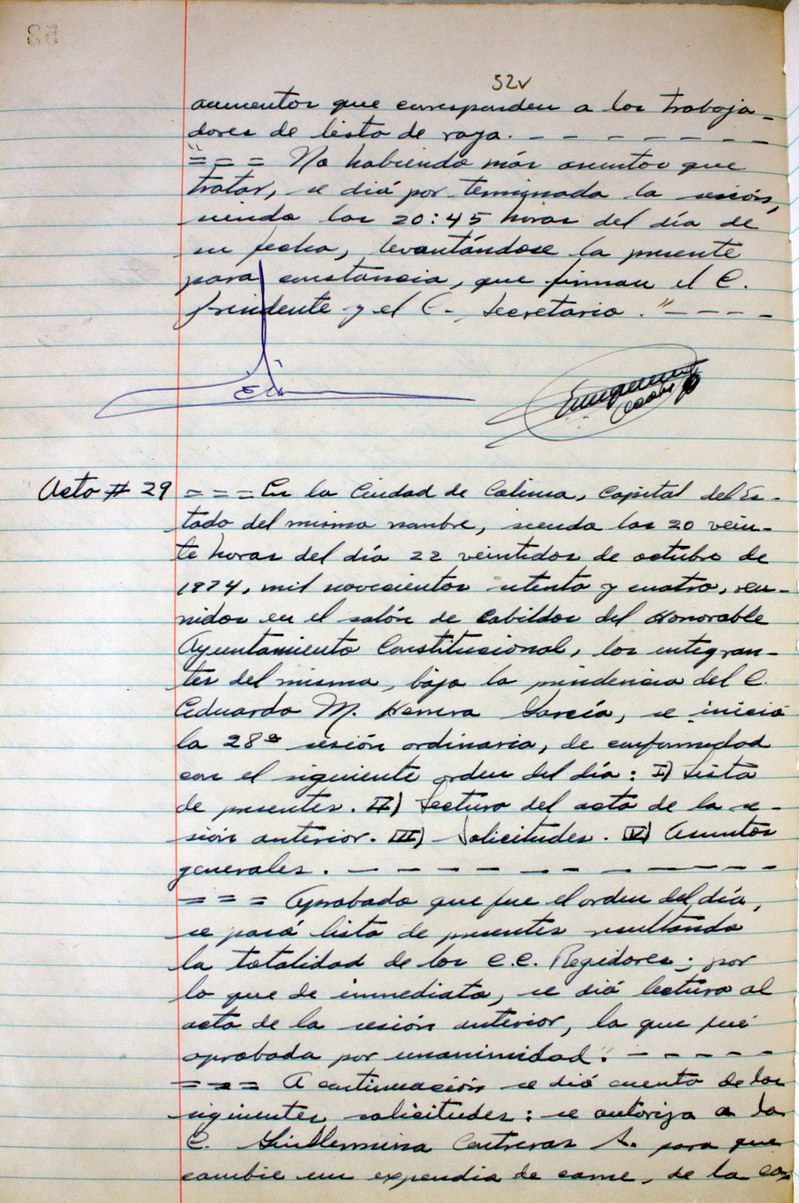 52v
aumentos que corresponden a los trabaja-
dores de lista de raya. - - - - - - - -
"= = = No habiendo más asuntos que
tratar, se dió por terminada la sesión,
siendo las 20:45 horas del día de
su fecha, levantándose la presente
para constancia, que firman el C.
Presidente y el C. Secretario." - - - -
Acta # 29 = = = En la Ciudad de Colima, Capital del Es-
tado del mismo nombre, siendo las 20 vein-
te horas del día 22 veintidos de octubre de
1974, mil novecientos setenta y cuatro, reu-
nidos en el salón de Cabildos del Honorable
Ayuntamiento Constitucional, los integran-
tes del mismo, bajo la presidencia del C.
Eduardo M. Herrera García, se inició
la 28ª sesión ordinaria, de conformidad
con el siguiente orden del día: I) Lista
de presentes. II) Lectura del acta de la se-
sión anterior. III) Solicitudes. IV) Asuntos
generales. - - - - - - - - - - -
= = = Aprobado que fue el orden del día,
se pasó lista de presentes resultando
la totalidad de los C.C. Regidores; por
lo que de inmediato, se dió lectura al
acta de la sesión anterior, la que fué
aprobada por unanimidad. - - - - - -
= = = A continuación se dió cuenta de las
siguientes solicitudes: se autoriza a la
C. Guillermina Contreras A. para que
cambie un expendio de carne, de la ca-